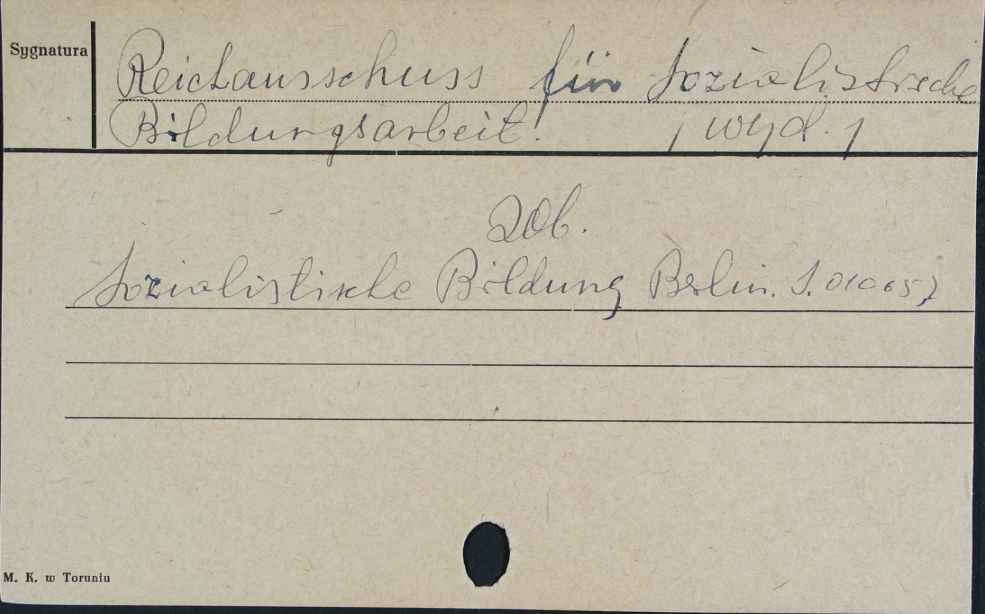 Sygnatura
Reichausschuss für Sozialistische
Bildungsarbeit. /wyd./
zob.
Sozialistische Bildung Berlin. S. 01065,
M. K. w Toruniu